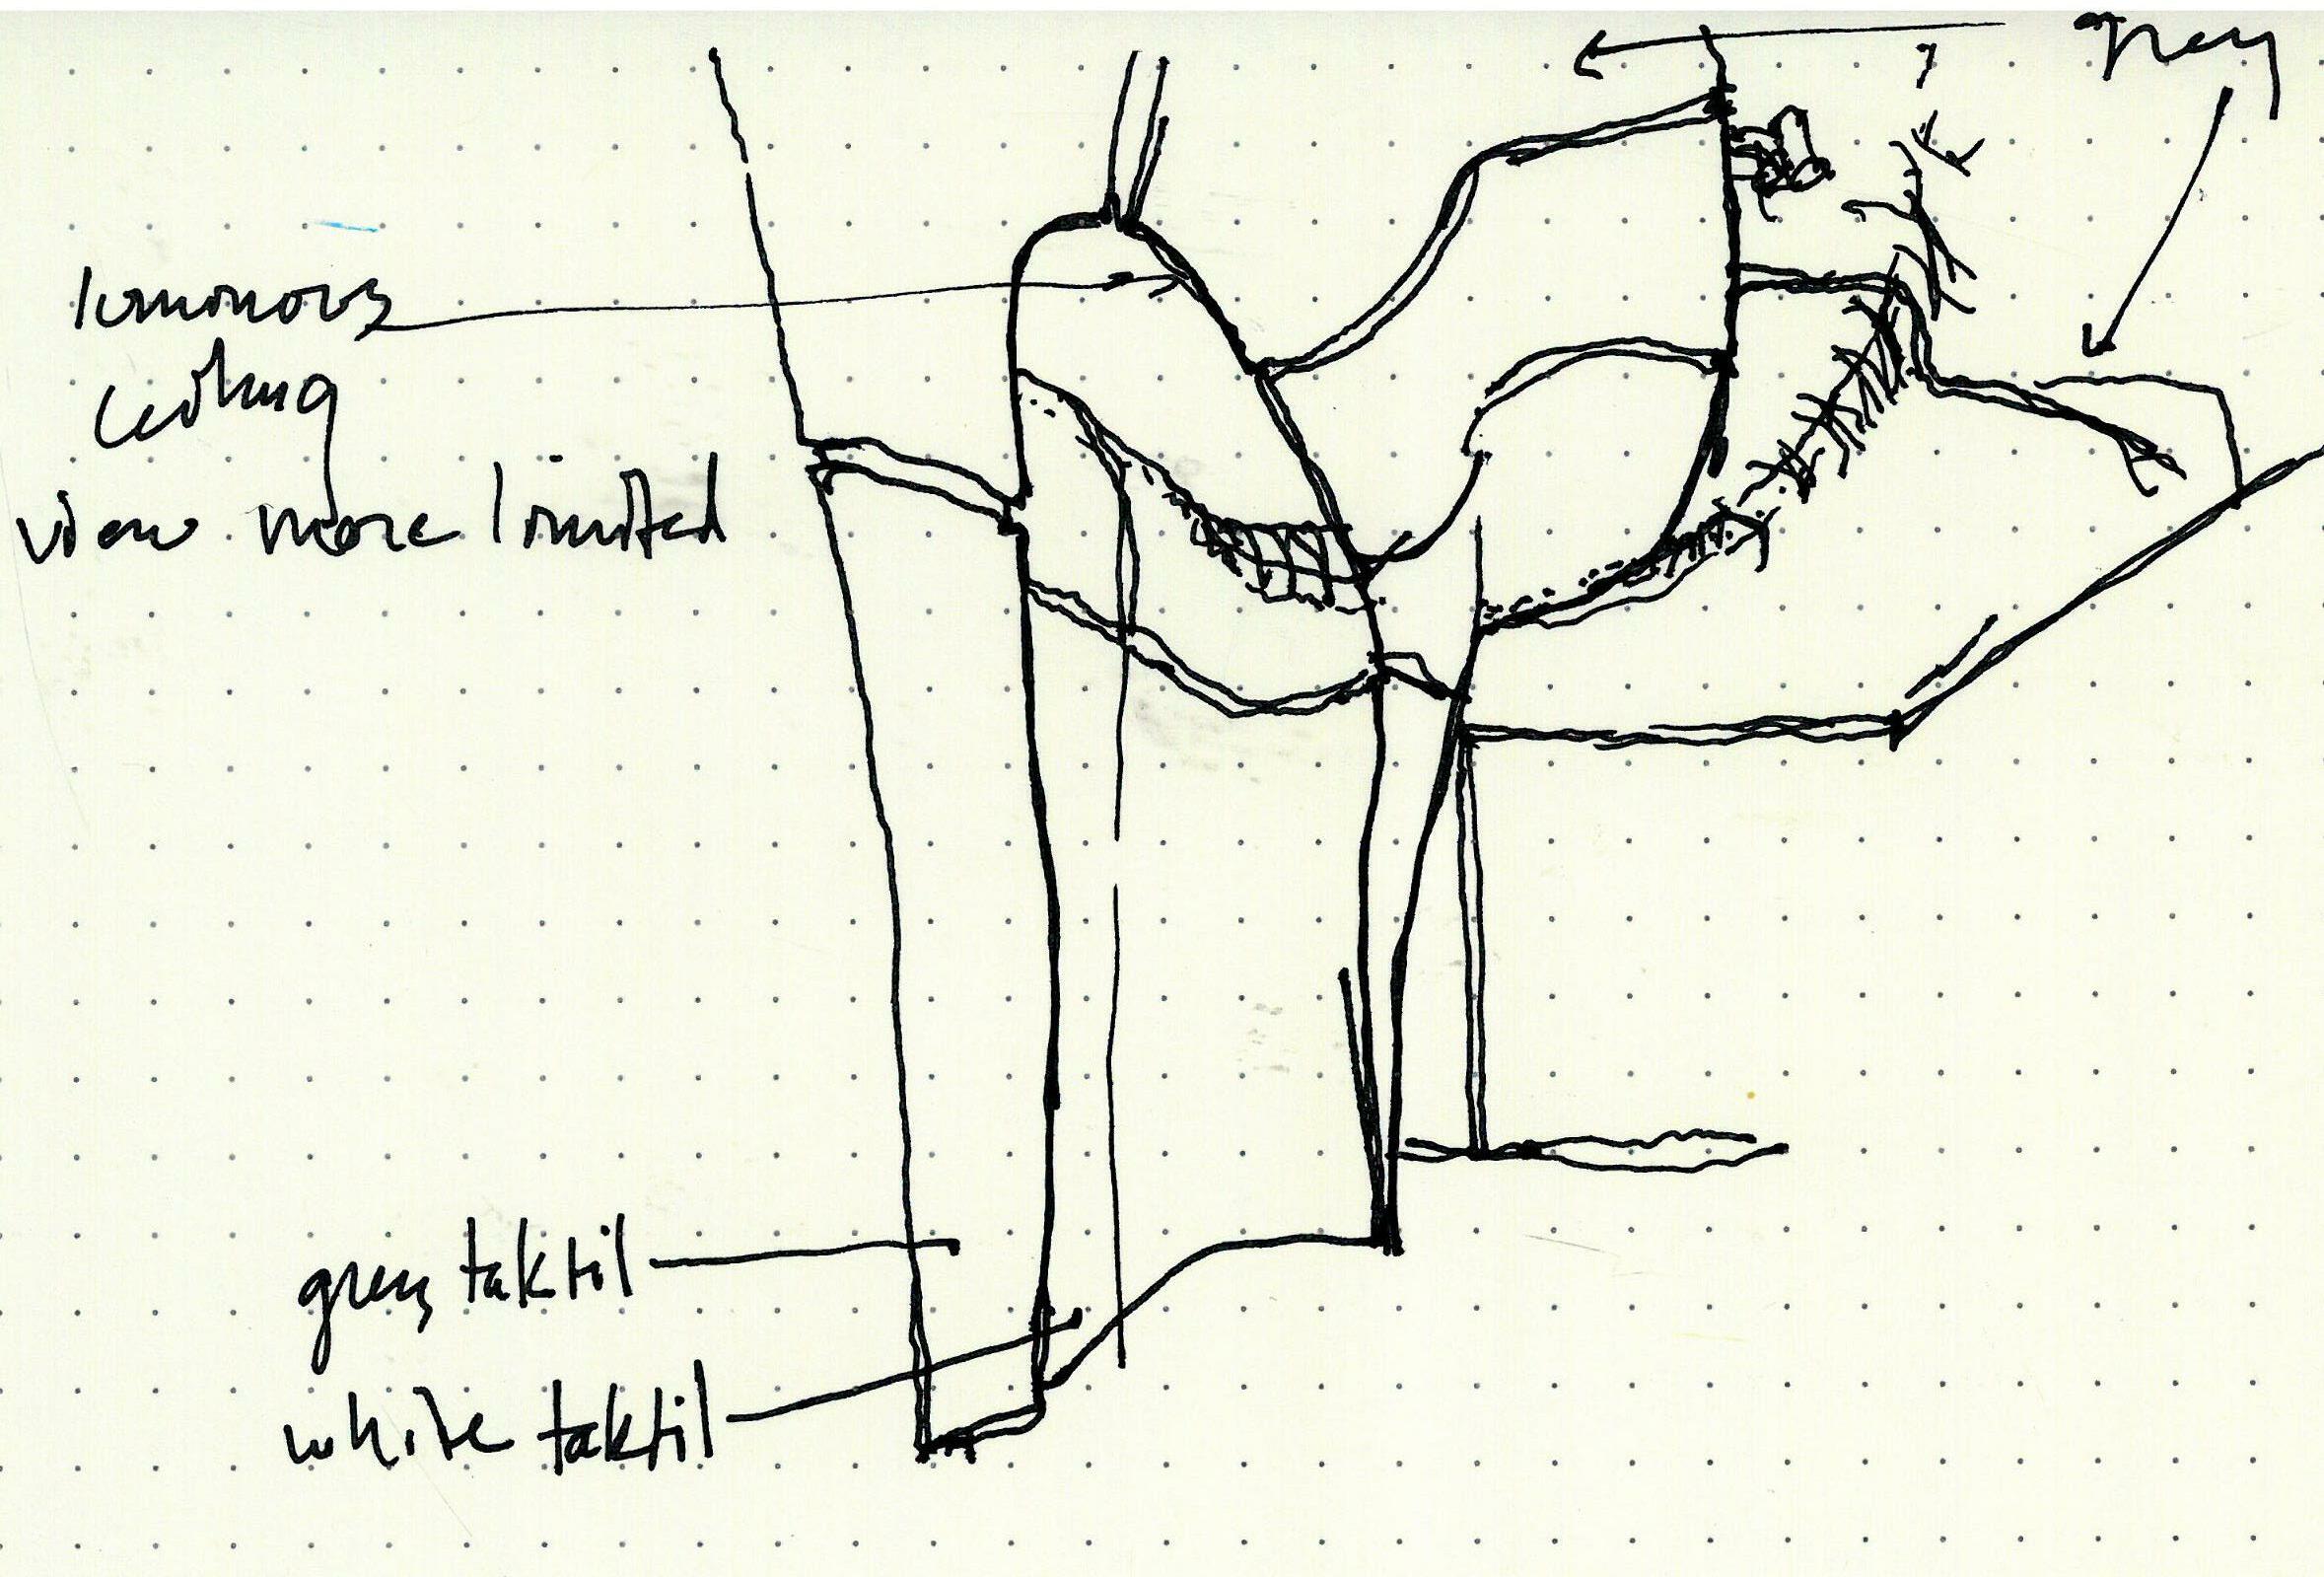 grey
luminous
ceiling
view more limited
grey taktil
white taktil